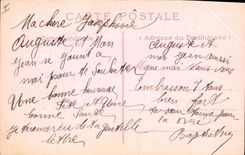 CARTE POSTALE
Ma chère Joséphine
Auguste et Mon
Jean se joint à
moi pour te souhaiter
Une bonne heureuse
fête et une
bonne Santé
Je te remercie de ta gentille
lettre
Adresse du Destinataire
Auguste et
mon Jean aussi
que moi nous vous
Embrassons tous
bien fort
pour la vie
Baptistine